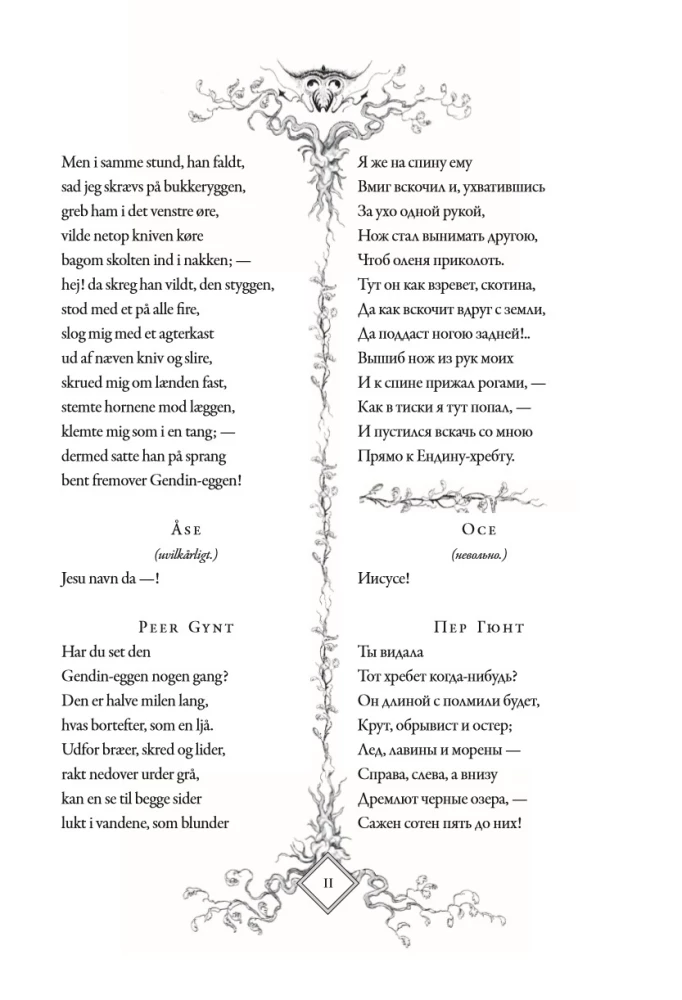 Men i samme stund, han faldt,
sad jeg skrævs på bukkeryggen,
greb ham i det venstre øre,
vilde netop kniven køre
bagom skolten ind i nakken; —
hej! da skreg han vildt, den styggen,
stod med et på alle fire,
slog mig med et agterkast
ud af næven kniv og slire,
skrued mig om lænden fast,
stemte hornene mod læggen,
klemte mig som i en tang; —
dermed satte han på sprang
bent fremover Gendin-eggen!
Åse
(uvilkårligt.)
Jesu navn da —!
Peer Gynt
Har du set den
Gendin-eggen nogen gang?
Den er halve milen lang,
hvas bortefter, som en ljå.
Udfor bræer, skred og lider,
rakt nedover urder grå,
kan en se til begge sider
lukt i vandene, som blunder
Я же на спину ему
Вмиг вскочил и, ухватившись
За ухо одной рукой,
Нож стал вынимать другою,
Чтоб оленя приколоть.
Тут он как взревет, скотина,
Да как вскочит вдруг с земли,
Да поддаст ногою задней!..
Вышиб нож из рук моих
И к спине прижал рогами, —
Как в тиски я тут попал, —
И пустился вскачь со мною
Прямо к Ендину-хребту.
Осе
(невольно.)
Иисусе!
Пер Гюнт
Ты видала
Тот хребет когда-нибудь?
Он длиной с полмили будет,
Крут, обрывист и остер;
Лед, лавины и морены —
Справа, слева, а внизу
Дремлют черные озера, —
Сажен сотен пять до них!
11